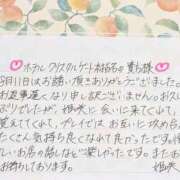 ♡ホテルクリスタルゲート本指名の貴方様♡
8月11日はお誘い頂きありがとうございました。
お返事遅くなり申し訳ございません。お久し
ぶりでしたが、姫咲に会いに来てくれて、
覚えてくれてて、プレイでは、お互いに攻め合
たくさん気持ち良くなれて良かったです。
いお店の話しなど楽しかったです。また
お待ちしております。 姫咲